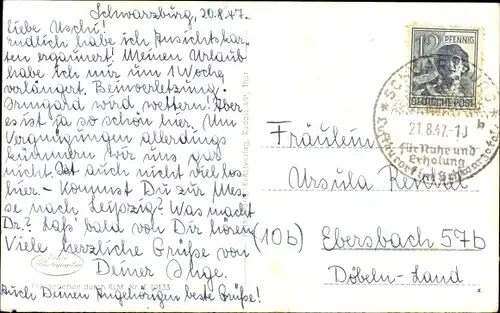 Schwarzburg, 20.8.47.
Liebe Uschi!
Endlich habe ich Ansichtskar-
ten ergaunert! Meinen Urlaub
habe ich mir um 1 Woche
verlängert. Beinverletzung.
Irmgard wird wettern! Aber
es ist ja so schön hier. Um
Vergnügungen allerdings
kümmern wir uns gar
nicht. Ist auch nicht viel los
hier.- Kommst Du zur Mes-
se nach Leipzig? Was macht
Dr.? Laß bald von Dir hören
Viele herzliche Grüße von
Deiner Inge.
Auch Deinen Angehörigen beste Grüße!
Freigegeben durch RLM. Nr.
12 PFENNIG
DEUTSCHE POST
21.8.47.-10
b
für Ruhe und
Erholung
Fräulein
Ursula
(10b) Ebersbach 57b
Döbeln-Land